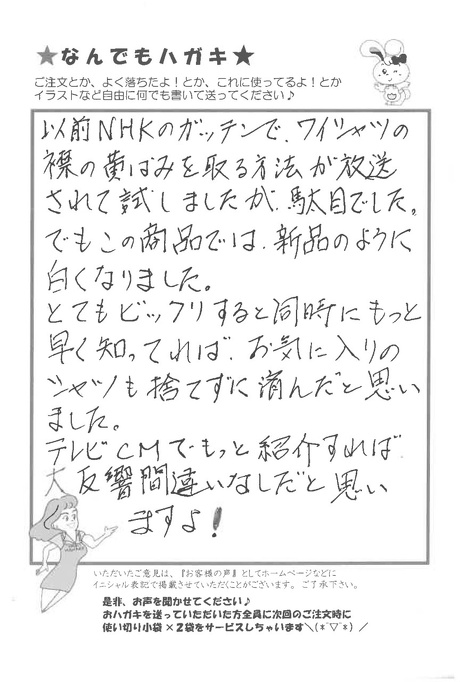 ★なんでもハガキ★
ご注文とか、よく落ちたよ！とか、これに使ってるよ！とか
イラストなど自由に何でも書いて送ってください♪
以前NHKのガッテンで、ワイシャツの
襟の黄ばみを取る方法が放送
されて試しましたが、駄目でした。
でもこの商品では、新品のように
白くなりました。
とてもビックリすると同時にもっと
早く知ってれば、お気に入りの
シャツも捨てずに済んだと思い
ました。
テレビCMでもっと紹介すれば、
大反響間違いなしだと思い
ますよ！
いただいたご意見は、『お客様の声』としてホームページなどに
イニシャル表記で掲載させていただくことがございます。ご了承下さい。
是非、お声を聞かせてください♪
おハガキを送っていただいた方全員に次回のご注文時に
使い切り小袋×2袋をサービスしちゃいます＼(*ˊ▽ˋ*)／